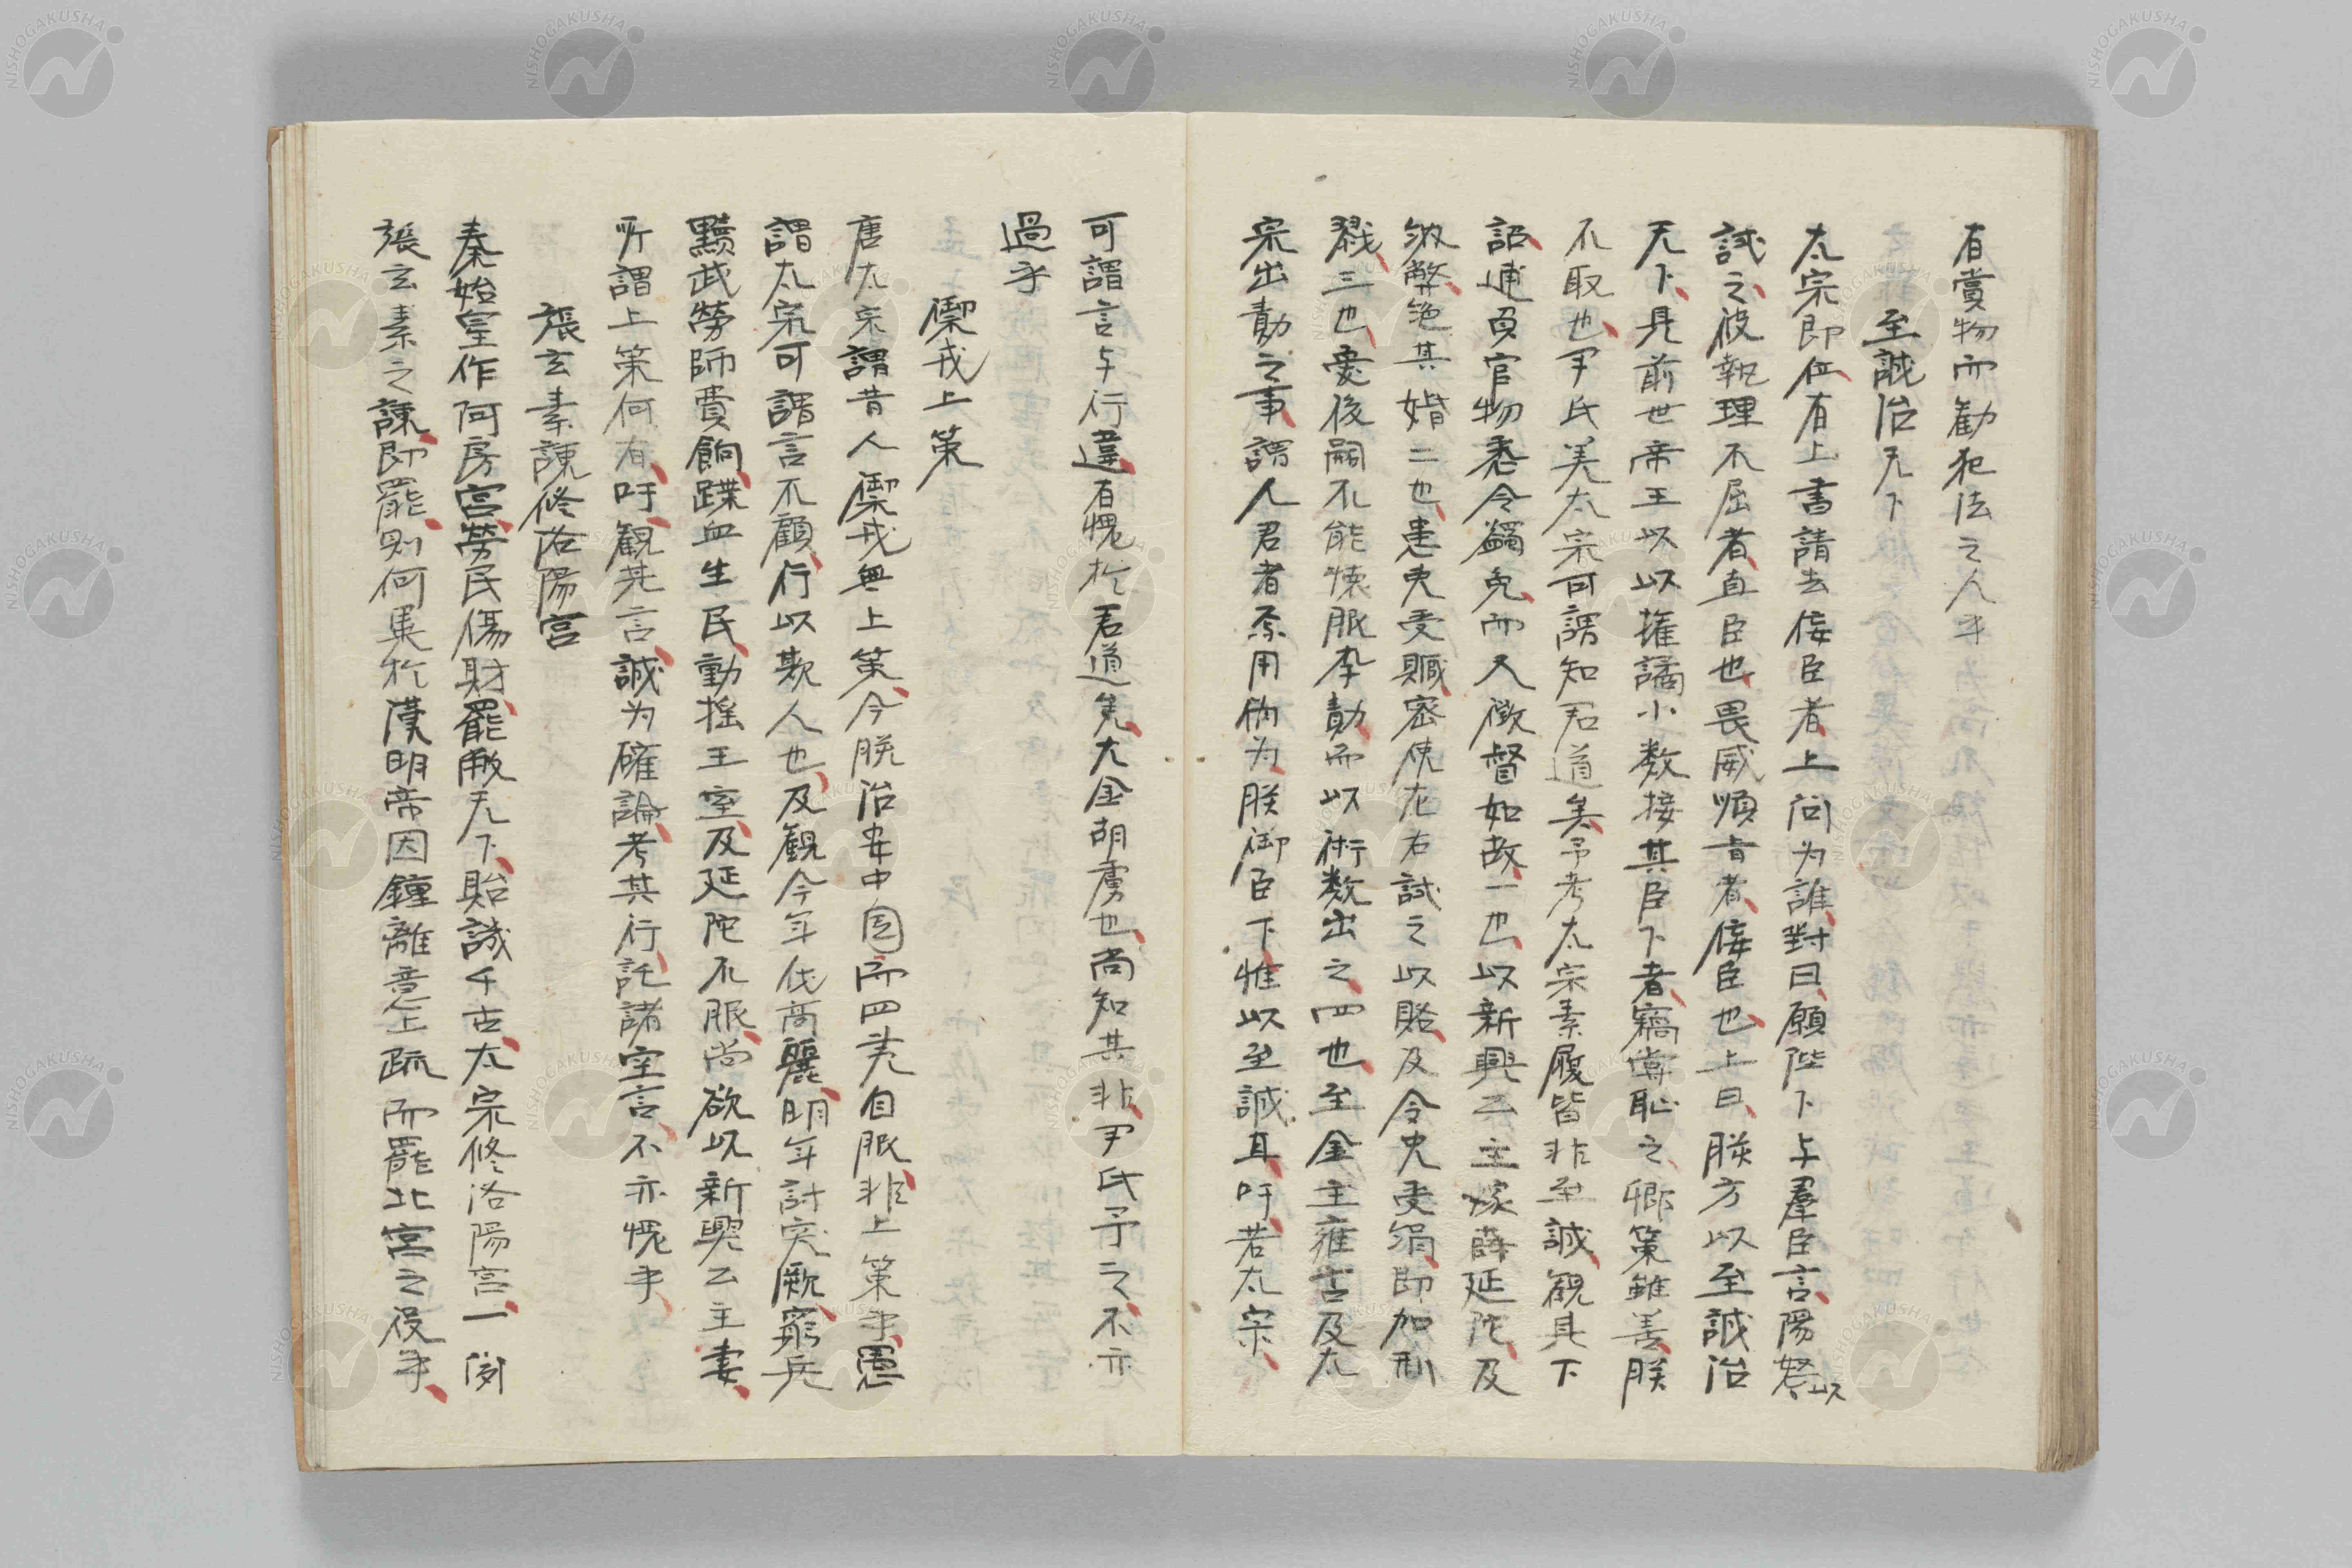 有賞物而勸犯法之人乎
至誠治天下
太宗即位有上書請去佞臣者上问为誰對曰願陛下与羣臣言陽怒以
試之彼執理不屈者直臣也畏威順旨者佞臣也上曰朕方以至誠治
天下見前世帝王以以權譎小数接其臣下者竊嘗恥之卿策雖善朕
不取也尹氏美太宗可謂知君道矣予考太宗素履皆非至誠観其下
詔逋負官物悉令蠲免而又徴督如故一也以新興公主嫁薛延陀及
絶其婚二也患吏受賕密使左右試之以賂及令史受絹即加刑
戮三也憂後嗣不能懐服李勣而以術数出之四也至金主雍言及太
宗出勣之事謂人君者焉用偽为朕御臣下惟以至誠耳吁若太宗
可謂言与行違有愧於君道矣大金胡虜也尚知其非尹氏予之不亦
過乎
禦戎上策
唐太宗謂昔人禦戎無上策今朕治安中国而四夷自服非上策乎愚
謂太宗可謂言不顧行以欺人也及観今年伐高麗明年討突厥窮兵
黷武勞師費餉蹀血生民動揺王室及延陀不服尚欲以新興公主妻
所謂上策何有吁観其言誠为確論考其行託諸空言不亦愧乎
張玄素諫修洛陽宮
秦始皇作阿房宮勞民傷財罷敝天下貽譏千古太宗修洛陽宮一闻
張玄素之諫即罷則何異於漢明帝因鍾離意上疏而罷北宮之役乎